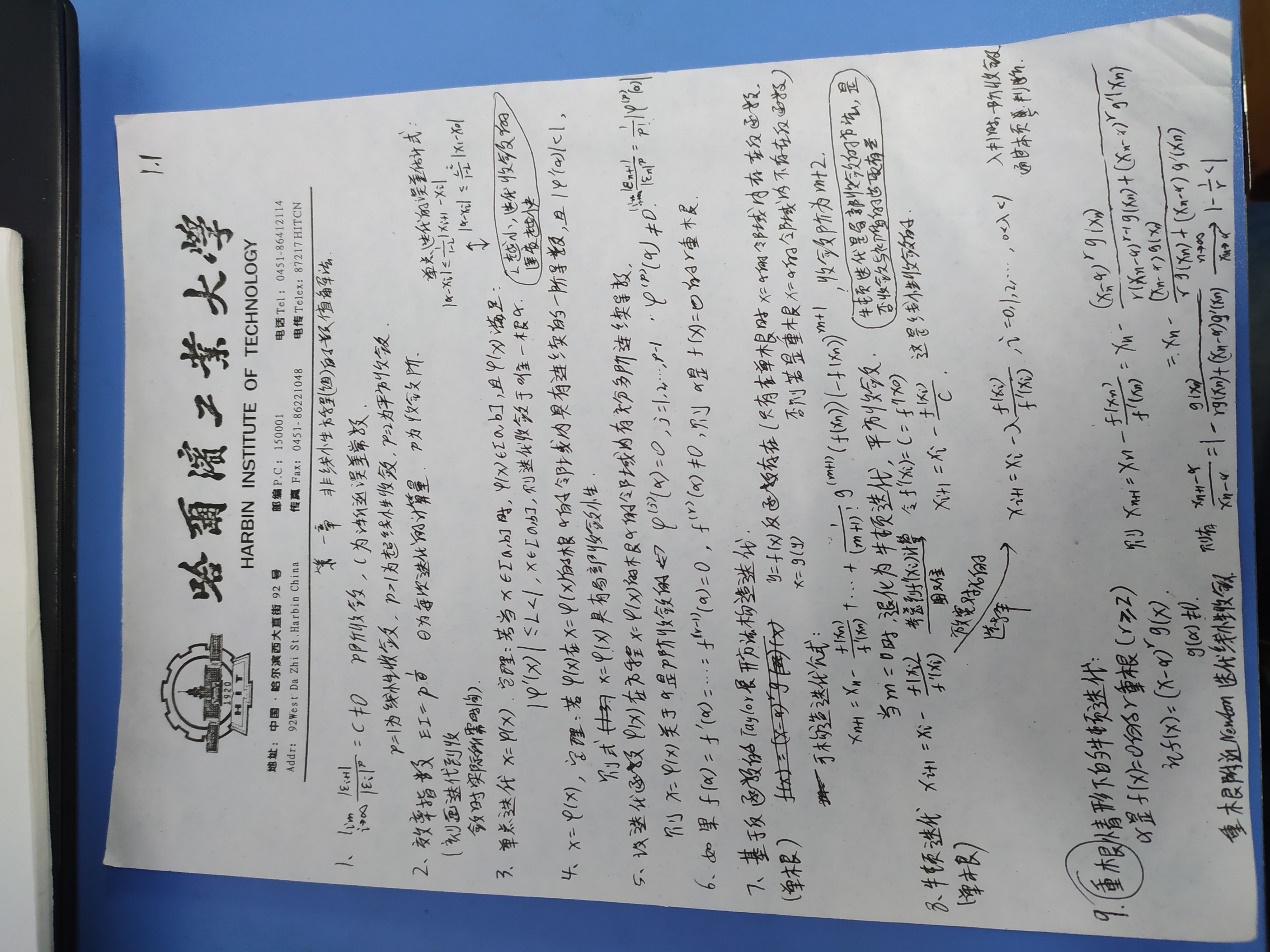 1.1
1920
HIT
哈爾濱工業大學
HARBIN INSTITUTE OF TECHNOLOGY
地址：中国·哈尔滨西大直街 92 号 邮编 P.C: 150001 电话 Tel: 0451-86412114
Addr: 92West Da Zhi St.Harbin China 传真 Fax: 0451-86221048 电传 Telex: 87217HITCN
第一章 非线性方程(组)的数值解法.
1、 lim i→∞ |εi+1|/|εi|^p = C≠0 p阶收敛, C为渐近误差常数.
p=1为线性收敛, p>1为超线性收敛, p=2为平方收敛.
2、效率指数 EI=p^(1/θ) θ为每次迭代的计算量. p为收敛阶.
(刻画迭代到收
敛时实际所需时间).
单点迭代的误差估计式:
|α-xi| ≤ 1/(1-L) |xi+1-xi|
|α-xi| ≤ L^i/(1-L) |x1-x0|
L越小, 迭代收敛的
速度越快
3、单点迭代 x=φ(x). 定理: 若当 x∈[a,b]时, φ(x)∈[a,b], 且φ(x)满足:
|φ'(x)| ≤L<1, x∈[a,b], 则迭代收敛于唯一根α.
4、x=φ(x), 定理: 若φ(x)在x=φ(x)的根α的邻域内具有连续的一阶导数, 且|φ'(α)|<1,
则式 x=φ(x)具有局部收敛性.
5、设迭代函数φ(x)在方程x=φ(x)的根α的邻域内有充分多阶连续导数,
则 x=φ(x)关于α是p阶收敛的⇔ φ^(j)(α)=0, j=1,2,…,p-1. φ^(p)(α)≠0. lim |εn+1|/|εn|^p = 1/p! |φ^(p)(α)|
6、如果 f(α)=f'(α)=…=f^(r-1)(α)=0, f^(r)(α)≠0, 则 α是f(x)=0的r重根.
7、基于反函数的Taylor展开方法构造迭代.
(单根) f(x)=(x-α)^r g(x) y=f(x)反函数存在(只有在单根时x=α的邻域内存在反函数.
x=g(y) 否则若是重根x=α的邻域内不存在反函数)
可构造迭代公式:
xn+1=xn- f(xn)/f'(xn) +…+ 1/(m+1)! g^(m+1)(f(xn))(-f(xn))^(m+1), 收敛阶为m+2.
当m=0时, 退化为牛顿迭代, 平方收敛.
牛顿迭代是局部收敛的方法, 是
否收敛与初值的选取有关
8、牛顿迭代 xi+1=xi- f(xi)/f'(xi) 令f'(xi)=C=f'(x0)
(单根) xi+1=xi- f(xi)/C 这是线性收敛的.
xi+1=xi-λ f(xi)/f'(xi), i=0,1,2,…, 0<λ<1
λ≠1时一阶收敛
9. 重根情形下的牛顿迭代:
α是f(x)=0的r重根(r≥2)
记f(x)=(x-α)^r g(x).
g(α)≠0.
则 xn+1=xn- f(xn)/f'(xn) = xn- (xn-α)^r g(xn)/(r(xn-α)^(r-1) g(xn)+(xn-α)^r g'(xn))
= xn- (xn-α)g(xn)/(r g(xn)+(xn-α) g'(xn))
则有 (xn+1-α)/(xn-α) = 1- g(xn)/(rg(xn)+(xn-α)g'(xn)) n→∞ xn→α 1- 1/r <1
重根附近Newton迭代线性收敛